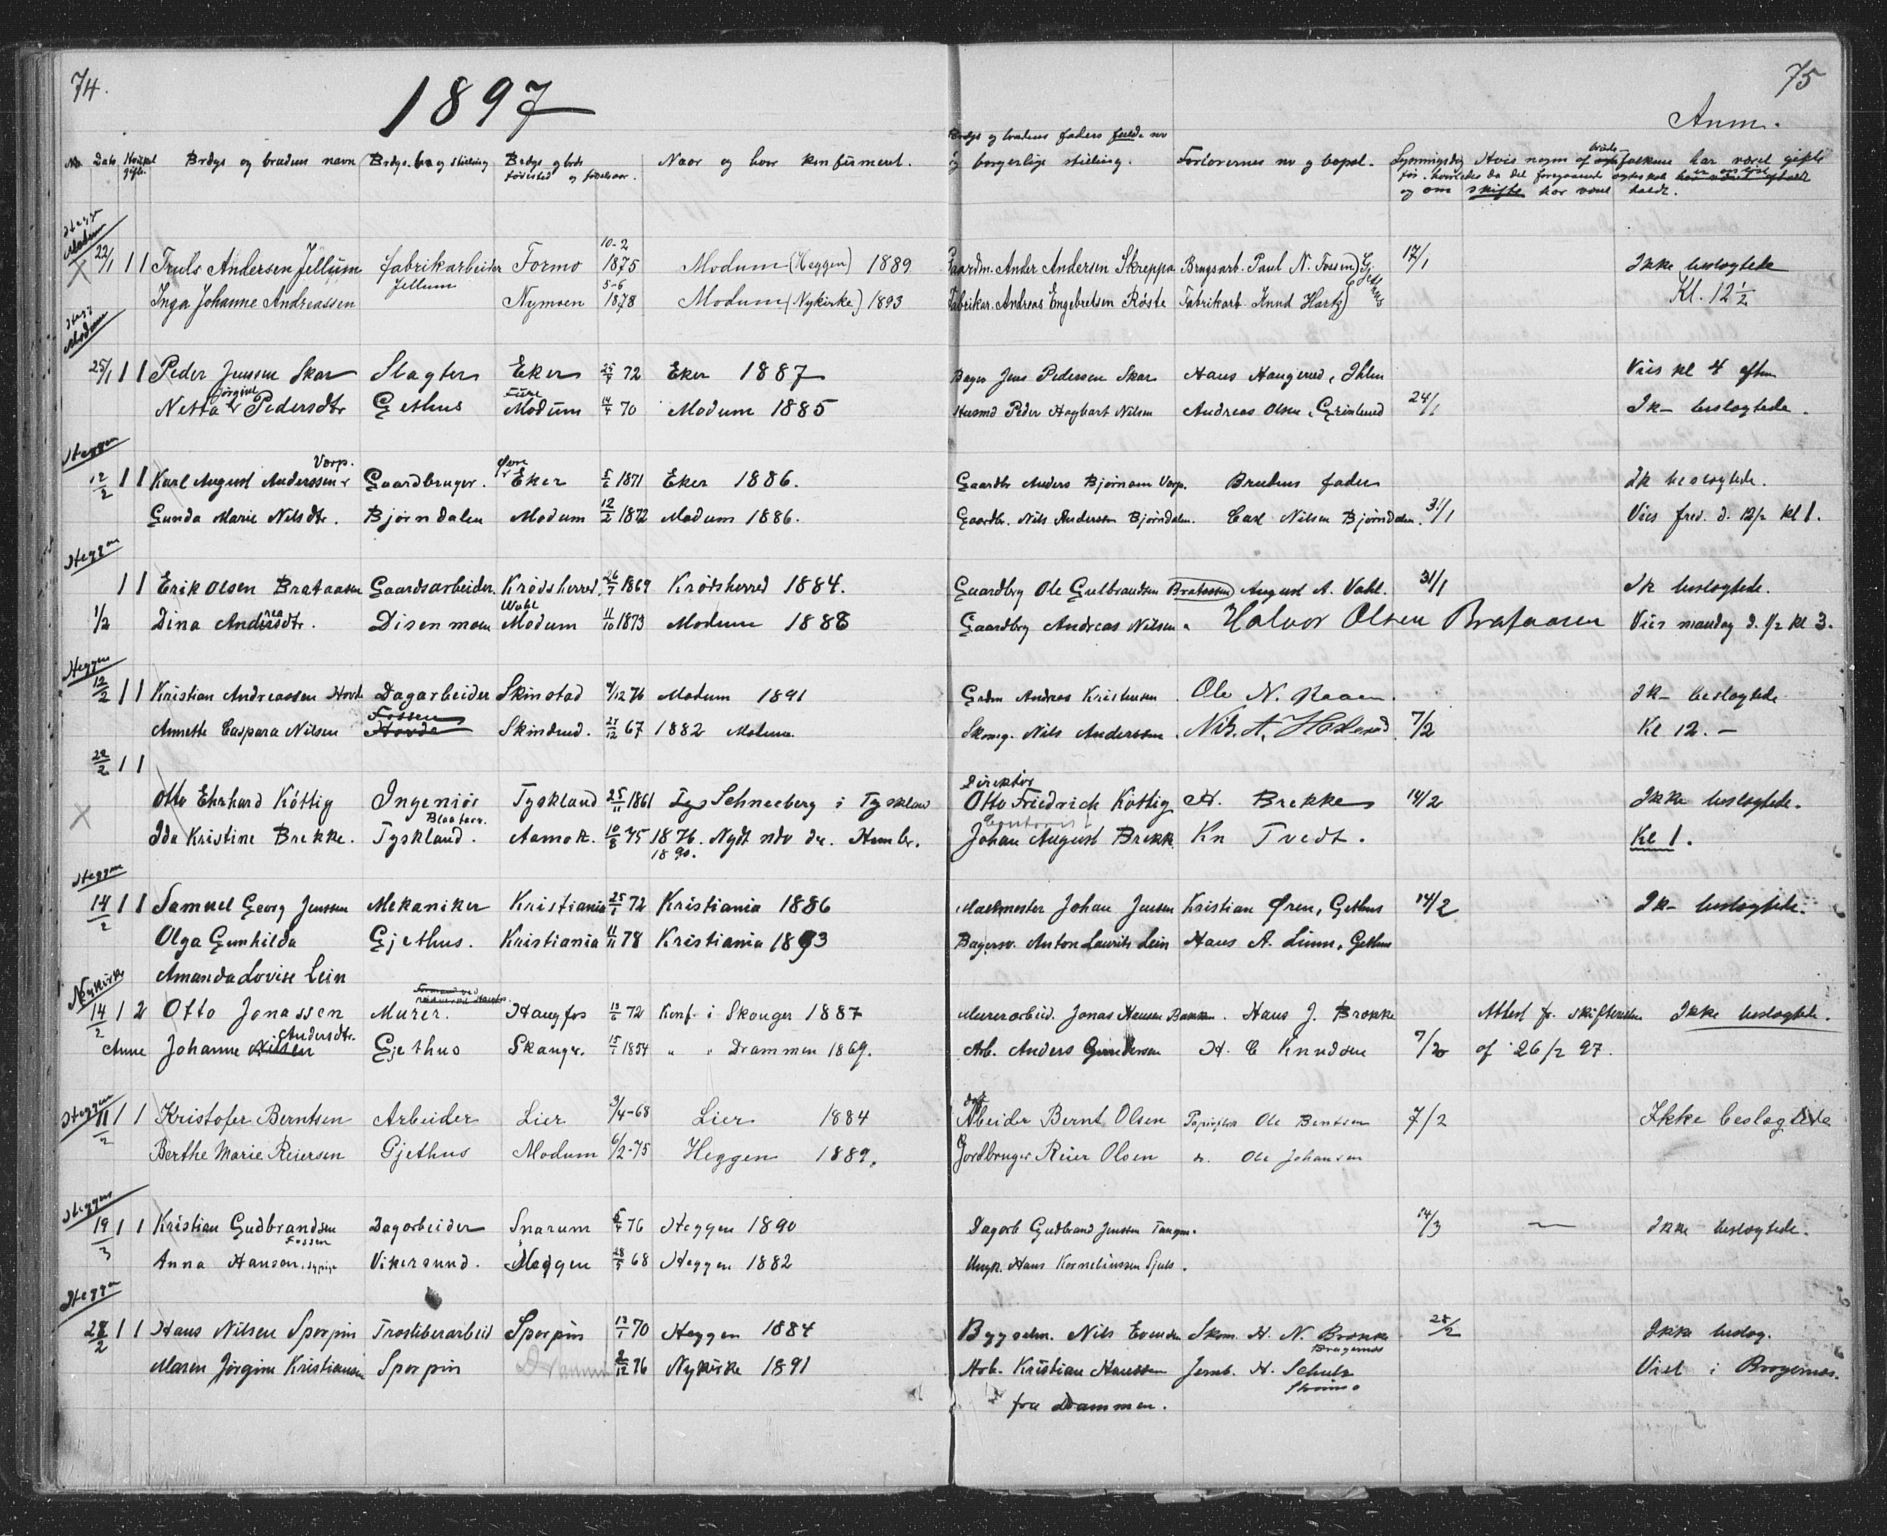 74. 1897 75
Anm.
No Dato Hvipul gifte. Brdgs og brudens navn Brdgs. bro og stilling Brdgs og brds fødested og fødselsaar. Naar og hvor konfirmeret. Brdgs og brudens faders fulde nv og borgerlige stilling. Forlovernes nv og bopæl. Lysningsdag Hvis nogen af brudefolkene har været gifte
og om skifte har været holdt.
Hegge Modum
22/1 1 1 Truls Andersen Jellum fabrikarbeider Jellum Formo 10-2 1875 Modum (Heggen) 1889 Gaardm. Ander Andersen Skreppa Brugsarb. Paul N. Fossen) Gjethus 17/1 Ikke beslegtede
Inga Johanne Andreassen Nymoen 5-6 1878 Modum (Nykirke) 1893 Fabrikar. Andreas Engebretsen Røste Fabrikarb. Knud Hartz) Kl. 12 1/2
Hegg Modum
25/1 1 1 Peder Jensen Skar Slagter Eker 25/7 72 Eker 1887 Bager Jens Pedersen Skar Hans Haugerud, Ihlen Vies kl 4 eftm
Netta Jørgine Pedersdtr Gethus Fure Modum 14/7 70 Modum 1885 Husmd Peder Hagbart Nilsen Andreas Olsen, Grinlund 24/1 Ik- beslegtede.
Heggen
12/2 1 1 Karl August Anderssen Vorp. Gaardbruger. Øvre Eker 5/6 1871 Eker 1886. Gaardbr Anders Bjørnsen Vorp. Brudens fader Ik beslegtede.
Gunda Marie Nilsdtr. Bjørndalen Modum 12/2 1872 Modum 1886. Gaardbr. Nils Andersen Bjørndalen. Carl Nilsen Bjørndalen. 31/1 Vies fred. d. 12/2 kl 1.
Heggen
1 1 Erik Olsen Brataasen Gaardsarbeider. Krødsherred. 26/7 1869 Krødsherred 1884. Gaardbrg Ole Gulbrandsen Brataasen August A. Vahl. 31/1 Ik beslegtede.
1/2 Dina Andreasdtr. Disenmoen Wahl Modum 11/10 1873 Modum 1888 Gaardbrg Andreas Nilsen. Halvor Olsen Brataasen Vies mandag d. 1/2 kl 3.
Heggen
12/2 1 1 Kristian Andreassen Hovde Dagarbeider Skinstad 4/12 76 Modum 1891 Grdm Andreas Kristensen Ole N. Raaen. Ik- beslegtede
Annette Caspara Nilsen Fossen Hovde Skindrud. 21/12 67 1882 Modum. Skomg. Nils Anderssen. Nils. A. 7/2 Kl 12. –
22/2 1 1
Otto Ehrhard Köttig Ingeniør Tyskland 25/11 1861 Schneeberg i Tyskland Direktør Otto Friedrich Köttig A. Brekke 14/2 Ikke beslegtede.
Ida Kristine Brekke. Tyskland. Aamot. 10/8 75 1876. 1890. Johan August Brekk Kn Tvedt. Kl 1.
Heggen
14/2 1 1 Samuel Georg Jenssen Mekaniker Kristiania 25/1 72 Kristiania 1886 Malermester Johan Jensen Kristian Øren, Gethus 14/2 Ik- beslegtede.
Olga Gunhilda Gjethus. Kristiania 11/11 78 Kristiania 1893 Bagersv. Anton Laurits Lein Hans A. Linn, Gethus
Amanda Lovise Lein
Nykirke
14/2 1 2 Otto Jonassen Murer. Haugfos 13/6 72 Konf. i Skouger 1887 Murerarbeid. Jonas Hansen Bakken. Hans J. Brokke Attest fr. skifteretten Ikke beslegtede.
Anne Johanne Nilsen Andersdtr. Gjethus Skauger. 15/1 1854 " " Drammen 1869. Arb. Anders Gundersen H. C Knudsen 7/20 af 26/2 97.
Heggen
11/2 1 1 Kristofer Berntsen Arbeider Lier 9/4-68 Lier 1884 Abeider Bernt Olsen Ole Berntsen 7/2 Ikke beslegtede
Berthe Marie Reiersen Gjethus Modum 6/2-75 Heggen 1889. Gordbruger Reier Olsen Ole Johansen
Heggen
19/3 1 1 Kristian Gudbrandsen Fossen Dagarbeider Snarum 5/7 76 Heggen 1890 Dagarb Gudbrand Jenssen Tangen. 14/3 — Ikke beslegtede.
Anna Hansen. Vikersund. Heggen 28/5 68 Heggen 1882 Ungk. Hans Kornelinssen Sjuls.
Heggen
28/2 1 1 Hans Nilsen Sporpin Træsliberarbeid Sporpin 13/1 70 Heggen 1884 Byggselm. Nils Evensen Skom. H. N. Brokke Bragernæs 28/2 Ikke besleg.
Maren Jørgine Kristiansen Sporpin Drammen 2/12 76 Nykirke 1891 Arb. Kristian Hanssen Jernb. H. Schulz Strømsø Viet i Bragernes.
fra Drammen.